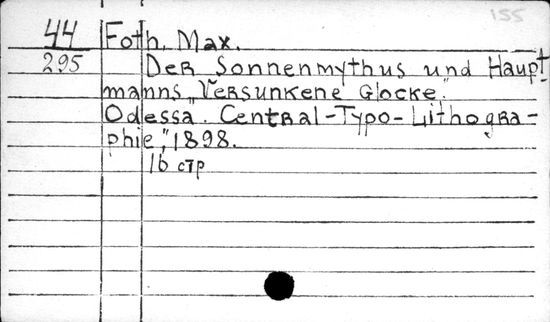 155
44 Foth, Max.
295 Der Sonnenmythus und Haupt
manns „Versunkene Glocke".
Odessa. Central-Typo-Lithogra-
phie", 1898.
16 стр